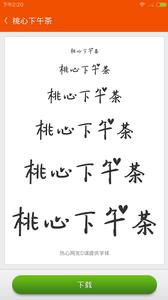 下午2:20
桃心下午茶
桃心下午茶
桃心下午茶
桃心下午茶
桃心下午茶
桃心下午茶
桃心下午茶
热心网友D漠提供字体
下载